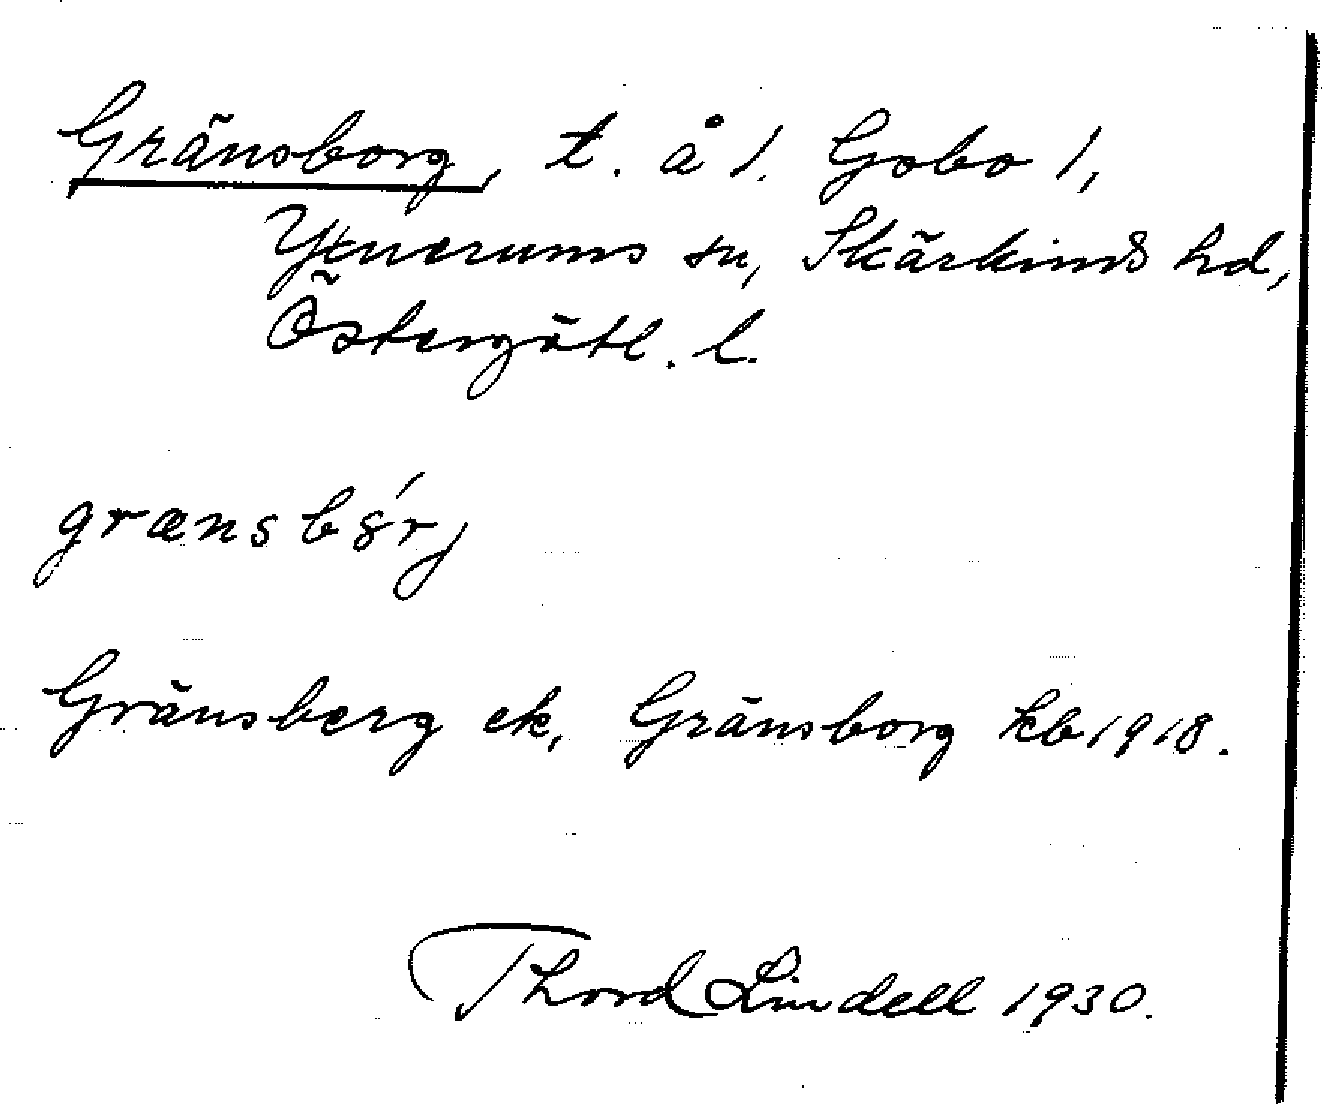 Gränsborg, t. å 1. Gobo 1,
Yxnerums sn, Skärkinds hd,
Östergötl. l.
grænsbȣ́rj
Gränsberg ek, Gränsborg kb 1918.
Thord Lindell 1930.